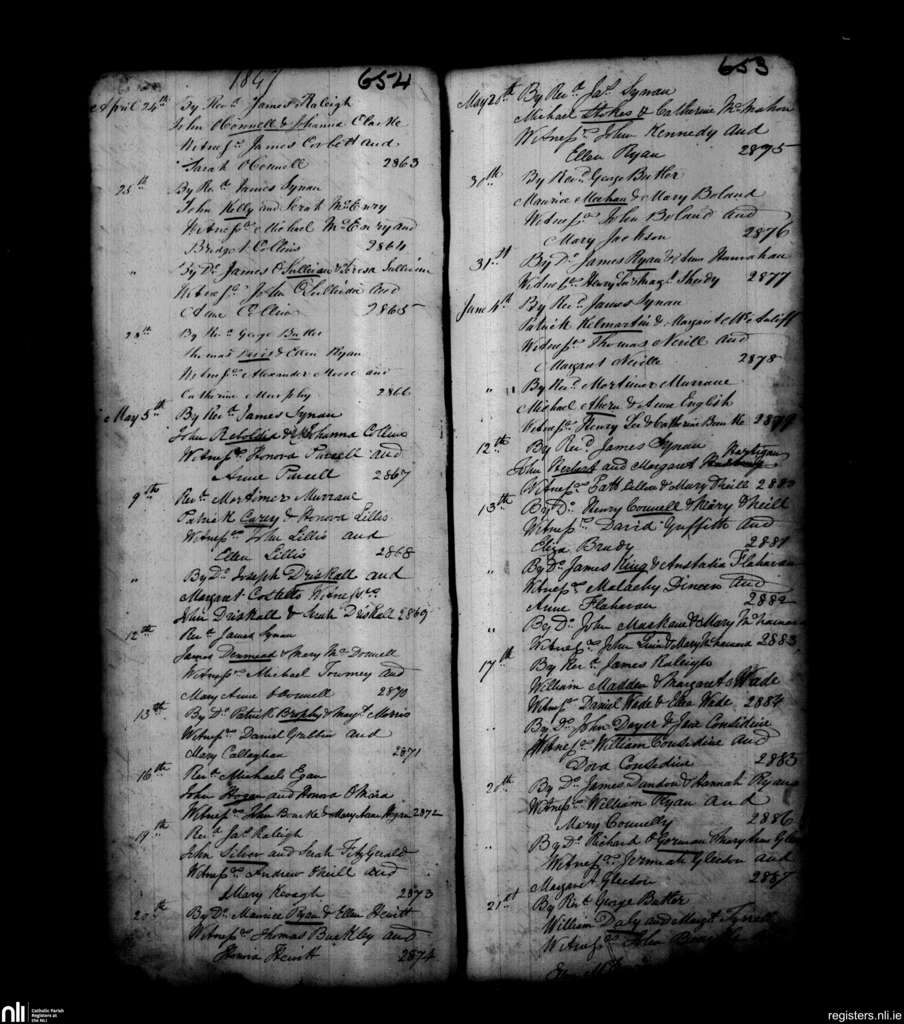 1847 654
April 24th By Revd. James Raleigh
John O Connell & Johanna Clarke
Witnesses James Corbett and
Sarah O Connell 2863
25th By Revd. James Synan
John Kelly and Sarah McEnry
Witnesses Michael McEnry and
Bridget Collins 2864
" By Do. James O Sullivan & Teresa Sullivan
Witnesses John O Sullivan and
Jane Collins 2865
28th By Revd. George Butler
Thomas Davis & Ellen Ryan
Witnesses Alexander Moore and
Catherine Murphy 2866
May 5th By Revd. James Synan
John & Johanna Collins
Witnesses Honora Pursell and
Anne Pursell 2867
9th Revd. Mortimer Murnane
Patrick Carey & Honora Lillis
Witnesses John Lillis and
Ellen Lillis 2868
" By Do. Joseph Driskall and
Margaret Costello Witnesses
John Driskall & Sarah Driskall 2869
12th Revd. James Synan
James & Mary McDonnell
Witnesses Michael Toomey and
Mary Anne O Donnell 2870
13th By Do. Patrick Brophy & Margt. Morris
Witnesses Daniel Griffin and
Mary Callaghan 2871
16th Revd. Michael Egan
John Hogan and Honora O Mara
Witnesses John Bourke & Mary Anne Hogan 2872
19th Revd. Jas. Raleigh
John Silver and Sarah FitzGerald
Witnesses Andrew O Neill and
Mary Keough 2873
20th By Do. Maurice Ryan & Ellen Hewitt
Witnesses Thomas Buckley and
Honora Hewitt 2874
653
May 20th By Revd. Jas. Synan
Michael Stokes & Catherine McMahon
Witnesses John Kennedy and
Ellen Ryan 2875
30th By Revd. George Butler
Maurice Meehan & Mary Boland
Witnesses John Boland and
Mary Jackson 2876
31st By Do. James Ryan & Anne Hannahan
Witnesses Henry & Margt. Sheedy 2877
June 4th By Revd. James Synan
Patrick Kilmartin & Margaret McAuliff
Witnesses Thomas Nevill and
Margaret Neville 2878
" By Revd. Mortimer Murnane
Michael Ahern & Anne English
Witnesses Henry Lee & Catherine Bourke 2879
12th By Revd. James Synan
John Herbert and Margaret Hartigan
Witnesses Cullen & Mary O Neill 2880
13th By Do. Henry Connell & Mary O Neill
Witnesses David Griffith and
Eliza Brudy 2881
" By Do. James King & Anstatia Flahavan
Witnesses Malachy Dineen and
Anne Flahavan 2882
" By Do. John & Mary McNamara
Witnesses John Quin & Mary McNamara 2883
17th By Revd. James Raleigh
William Madden & Margaret Wade
Witnesses Daniel Wade & Eliza Wade 2884
" By Do. John Dwyer & Jane Considine
Witnesses William Considine and
Dora Considine 2885
20th By Do. James Dundon & Hannah Ryan
Witnesses William Ryan and
Mary Connelly 2886
" By Do. Richard O Gorman & Mary Ann Gleeson
Witnesses Jeremiah Gleeson and
Margaret Gleeson 2887
21st By Revd. George Butler
William Daly and Margt. Tyrrell
Witnesses John
nli Catholic Parish
Registers at
the NLI
registers.nli.ie